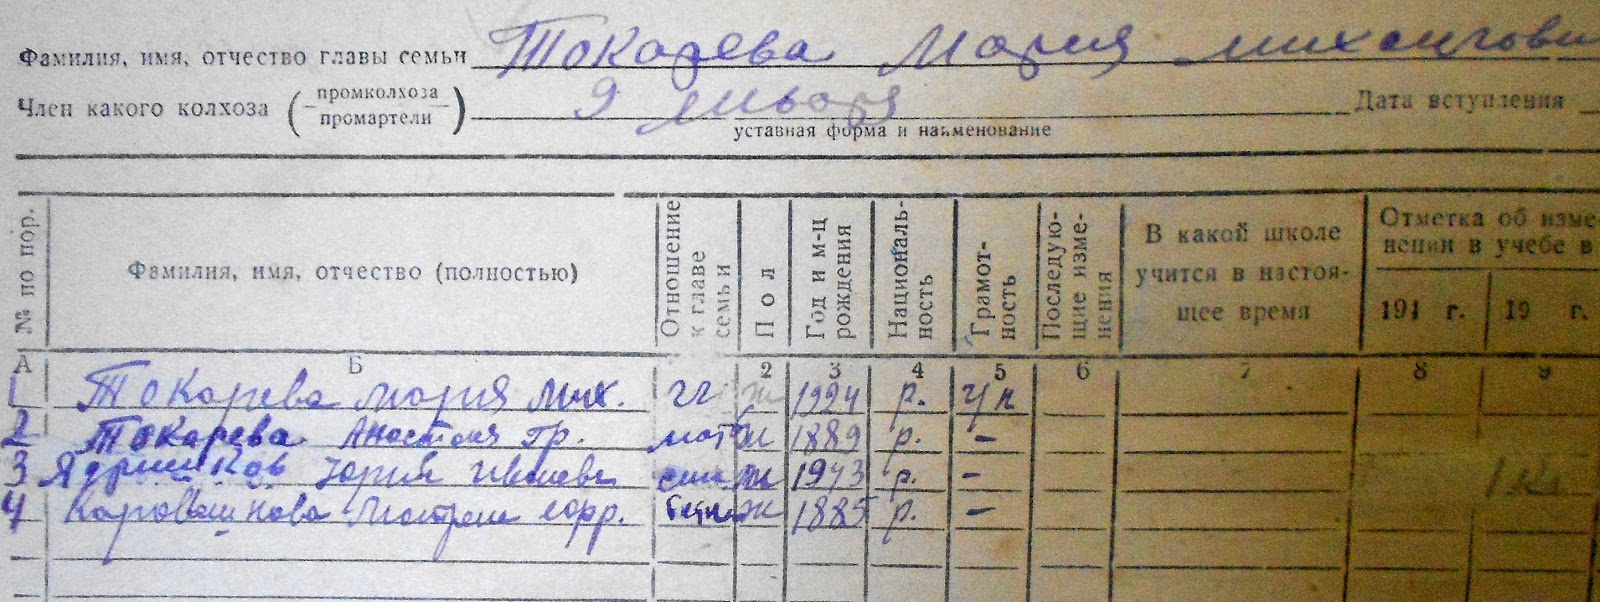 Фамилия, имя, отчество главы семьи Токарева Мария
Член какого колхоза (промколхоза промартели) 9 января Дата вступления
уставная форма и наименование
№ по пор. Фамилия, имя, отчество (полностью) Отношение к главе семьи Пол Год и м-ц рождения Националь-ность Грамот-ность Последую-щие изме-нения В какой школе учится в настоя-щее время Отметка об изме нении в учебе в
191 г. 19 г.
А Б 2 3 4 5 6 7 8 9
1 Токарева Мария Мих. гл ж 1924 р.
2 Токарева Анастасия Гр. мать 1889 р. -
3 Юрий 1943 р. -
4 ж 1885 р. -